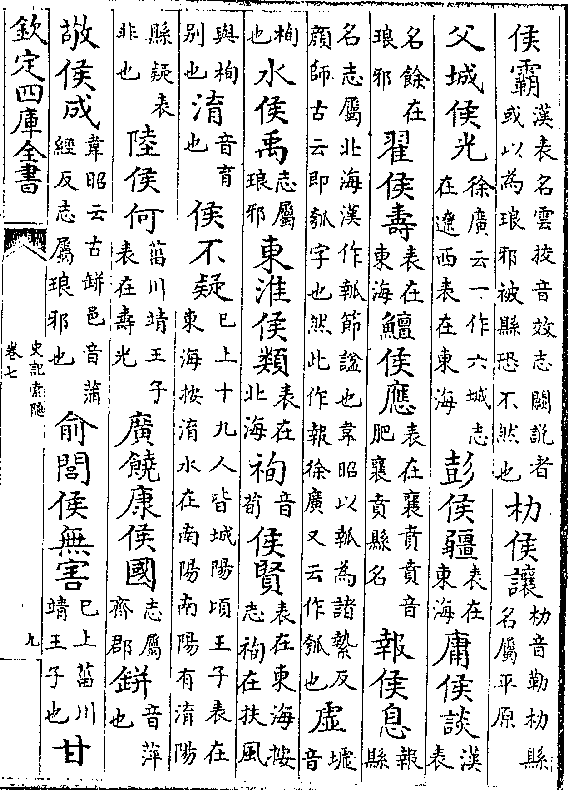 侯霸漢表名雲挍音效志闕說者或以為琅邪被縣恐不然也朸侯讓朸音勒朸縣名屬平原
父城侯光徐廣云一作六城志在遼西表在東海彭侯彊表在東海庸侯談漢表
名餘在琅邪翟侯壽表在東海鱣侯應表在襄賁賁音肥襄賁縣名報侯息報縣
名志屬北海漢作瓡節諡也韋昭以瓡為諸縶反顔師古云即瓠字也然此作報徐廣又云作瓠也虛墟音
栒也水侯禹志屬琅邪東淮侯類表在北海栒音荀侯賢表在東海按志栒在扶風
與栒别也淯音育也侯不疑已上十九人皆城陽頃王子表在東海按淯水在南陽南陽有淯陽
縣疑表非也陸侯何菑川靖王子表在壽光廣饒康侯國志屬齊郡缾音萍也
敬侯成韋昭云古缾邑音蒲經反志屬琅邪也俞閭侯無害已上菑川靖王子也甘
欽定四庫全書
史記索隱
卷七
九